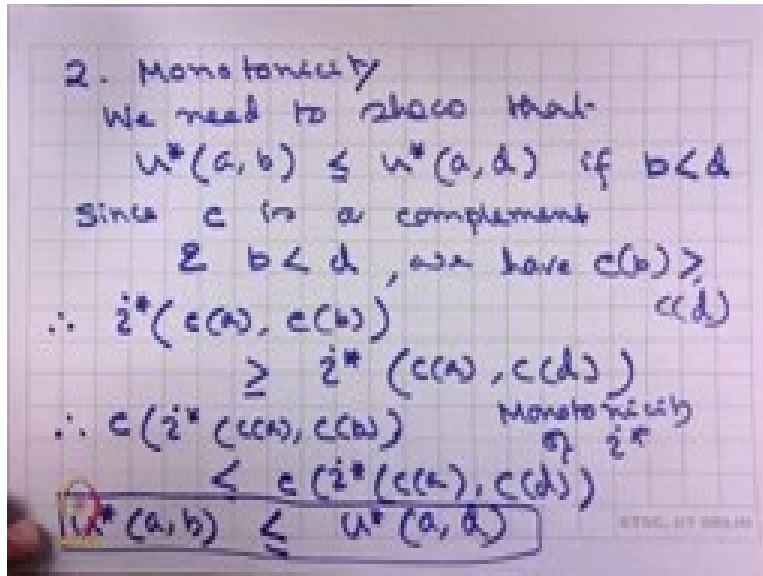 2. Monotonicity
We need to show that
u*(a,b) ≤ u*(a,d) if b<d
Since c is a complement
& b<d, we have c(b) ≥
c(d)
∴ i*(c(a), c(b))
≥ i*(c(a), c(d))
∴ c(i*(c(a), c(b)) Monotonicity
of i*
< c(i*(c(a), c(d))
u*(a,b) ≤ u*(a,d)
ETSC, IIT DELHI